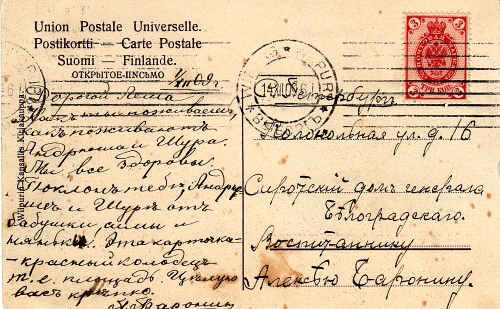 Union Postale Universelle.
Postikortti — Carte Postale
Suomi — Finlande.
ОТКРЫТОЕ ПИСЬМО
Wiipurin Kansallis Kirjakauppa
Дорогой Леша
Какъ ты поживаешь,
какъ поживаютъ
Андрюша и Шура.
Мы все здоровы.
Поклонъ тебѣ, Андрю
шѣ и Шурѣ отъ
бабушки, симы и
няньки. Эта карточка-
-красный колодецъ
т. е. площадь. Цѣлую
васъ крѣпко.
3 3
ТРИ КОП.
3 3
ВЫБОРГЪ
Петербургъ.
Колокольная ул. д. 16
Сиротскій домъ генерала
Бѣлоградскаго.
Воспитаннику
Алексѣю Баронину.